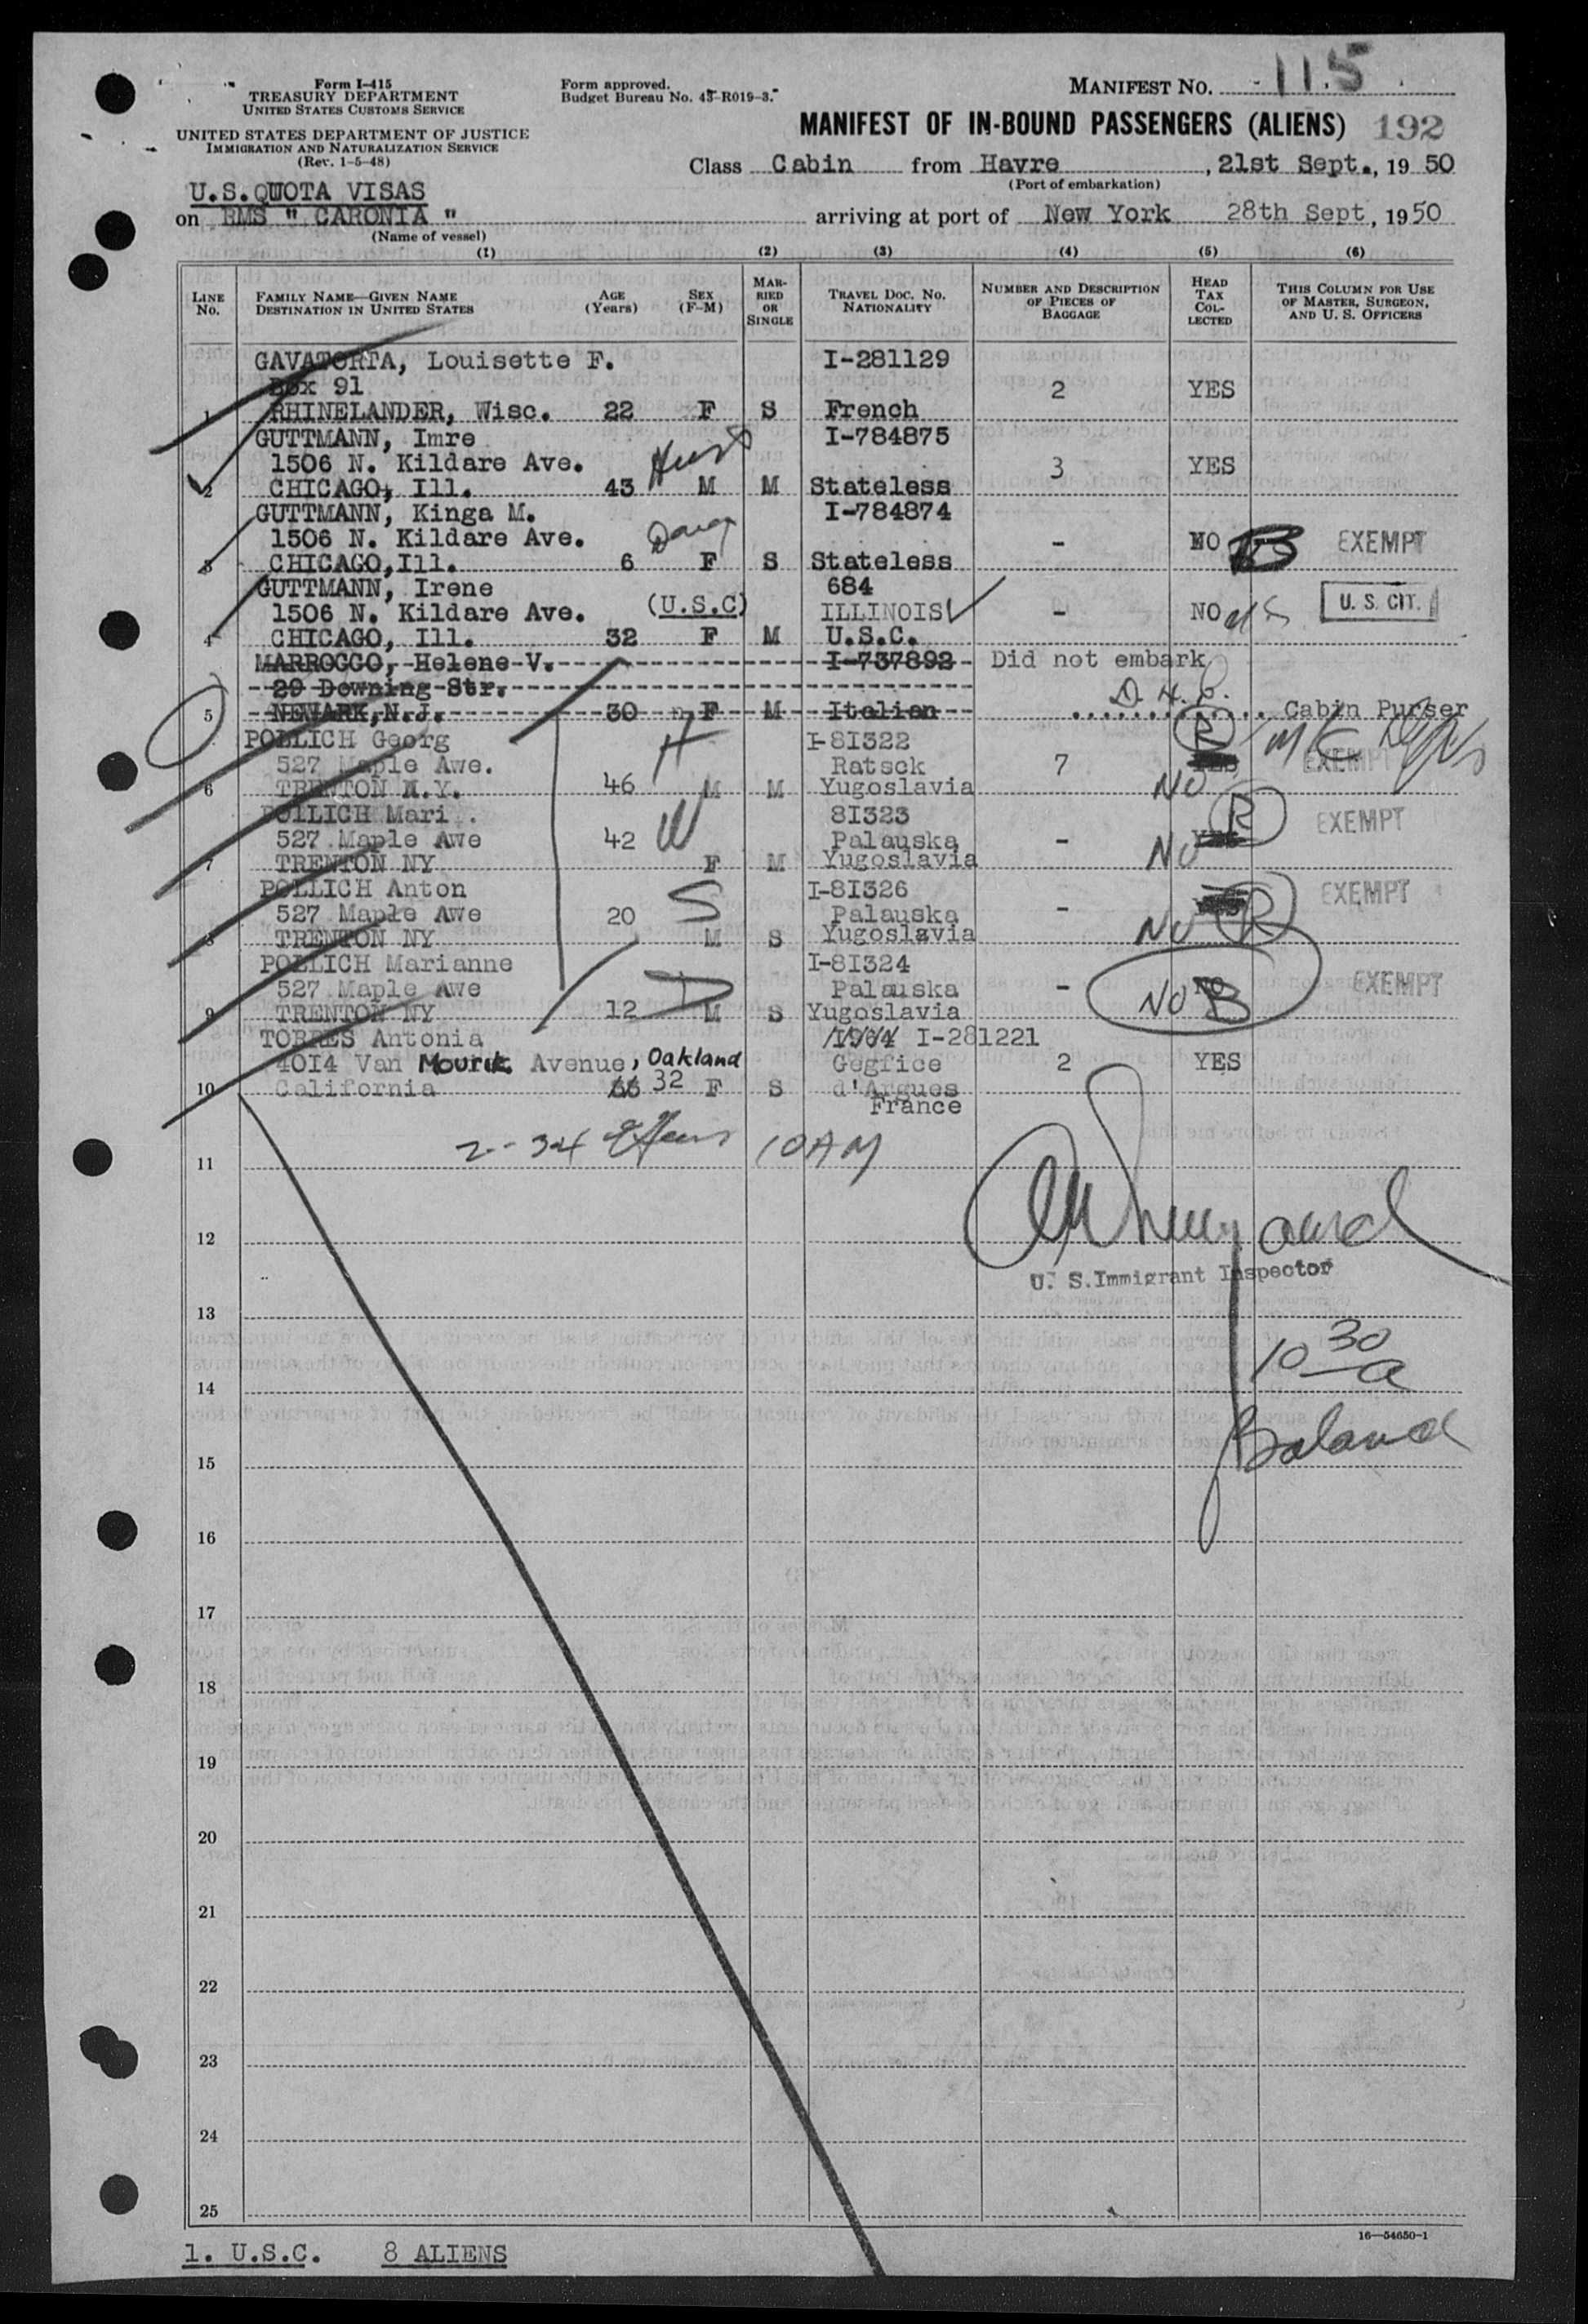 Form I-415
TREASURY DEPARTMENT
UNITED STATES CUSTOMS SERVICE
UNITED STATES DEPARTMENT OF JUSTICE
IMMIGRATION AND NATURALIZATION SERVICE
(Rev. 1-5-48)
Form approved.
Budget Bureau No. 43-R019-3.
MANIFEST NO. 115
MANIFEST OF IN-BOUND PASSENGERS (ALIENS) 192
Class Cabin from Havre, 21st Sept., 1950
(Port of embarkation)
U.S.QUOTA VISAS
on RMS " CARONIA " arriving at port of New York 28th Sept, 1950
(Name of vessel)
(1) (2) (3) (4) (5) (6)
LINE No.
FAMILY NAME—GIVEN NAME
DESTINATION IN UNITED STATES
AGE (Years)
SEX (F-M)
MARRIED OR SINGLE
TRAVEL DOC. NO.
NATIONALITY
NUMBER AND DESCRIPTION OF PIECES OF BAGGAGE
HEAD TAX COLLECTED
THIS COLUMN FOR USE OF MASTER, SURGEON, AND U. S. OFFICERS
GAVATORTA, Louisette F. I-281129
Box 91 2 YES
1 RHINELANDER, Wisc. 22 F S French
GUTTMANN, Imre I-784875
1506 N. Kildare Ave. Hus 3 YES
2 CHICAGO, Ill. 43 M M Stateless
GUTTMANN, Kinga M. I-784874
1506 N. Kildare Ave. Daug - NO B EXEMPT
3 CHICAGO,Ill. 6 F S Stateless
GUTTMANN, Irene 684
1506 N. Kildare Ave. (U.S.C) ILLINOIS - NO U. S. CIT.
4 CHICAGO, Ill. 32 F M U.S.C.
MARROCCO, Helene V. I-737892 Did not embark
29 Downing Str.
5 NEWARK,N.J. 30 F M Italian Cabin Purser
POLLICH Georg H I-81322 R
527 Maple Awe. Ratsck 7 YES EXEMPT
6 TRENTON N.Y. 46 M M Yugoslavia NO
POLLICH Mari W 81323 R
527 Maple Awe 42 Palauska - YES EXEMPT
7 TRENTON NY F M Yugoslavia NO
POLLICH Anton S I-81326 EXEMPT
527 Maple Awe 20 Palauska - R
8 TRENTON NY M S Yugoslavia NO
POLLICH Marianne I-81324
527 Maple Awe D Palauska - NO EXEMPT
9 TRENTON NY 12 M S Yugoslavia NO B
TORRES Antonia I-281221
4014 Van Mourik Avenue, Oakland Gegfice 2 YES
10 California 32 F S d'Argues
France
11 10AM
12
U. S.Immigrant Inspector
13
10 30 a
14
Boland
15
16
17
18
19
20
21
22
23
24
25
16—54650-1
1. U.S.C. 8 ALIENS